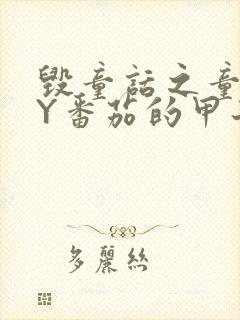 毀童話之童
Y番茄的甲
多麗絲